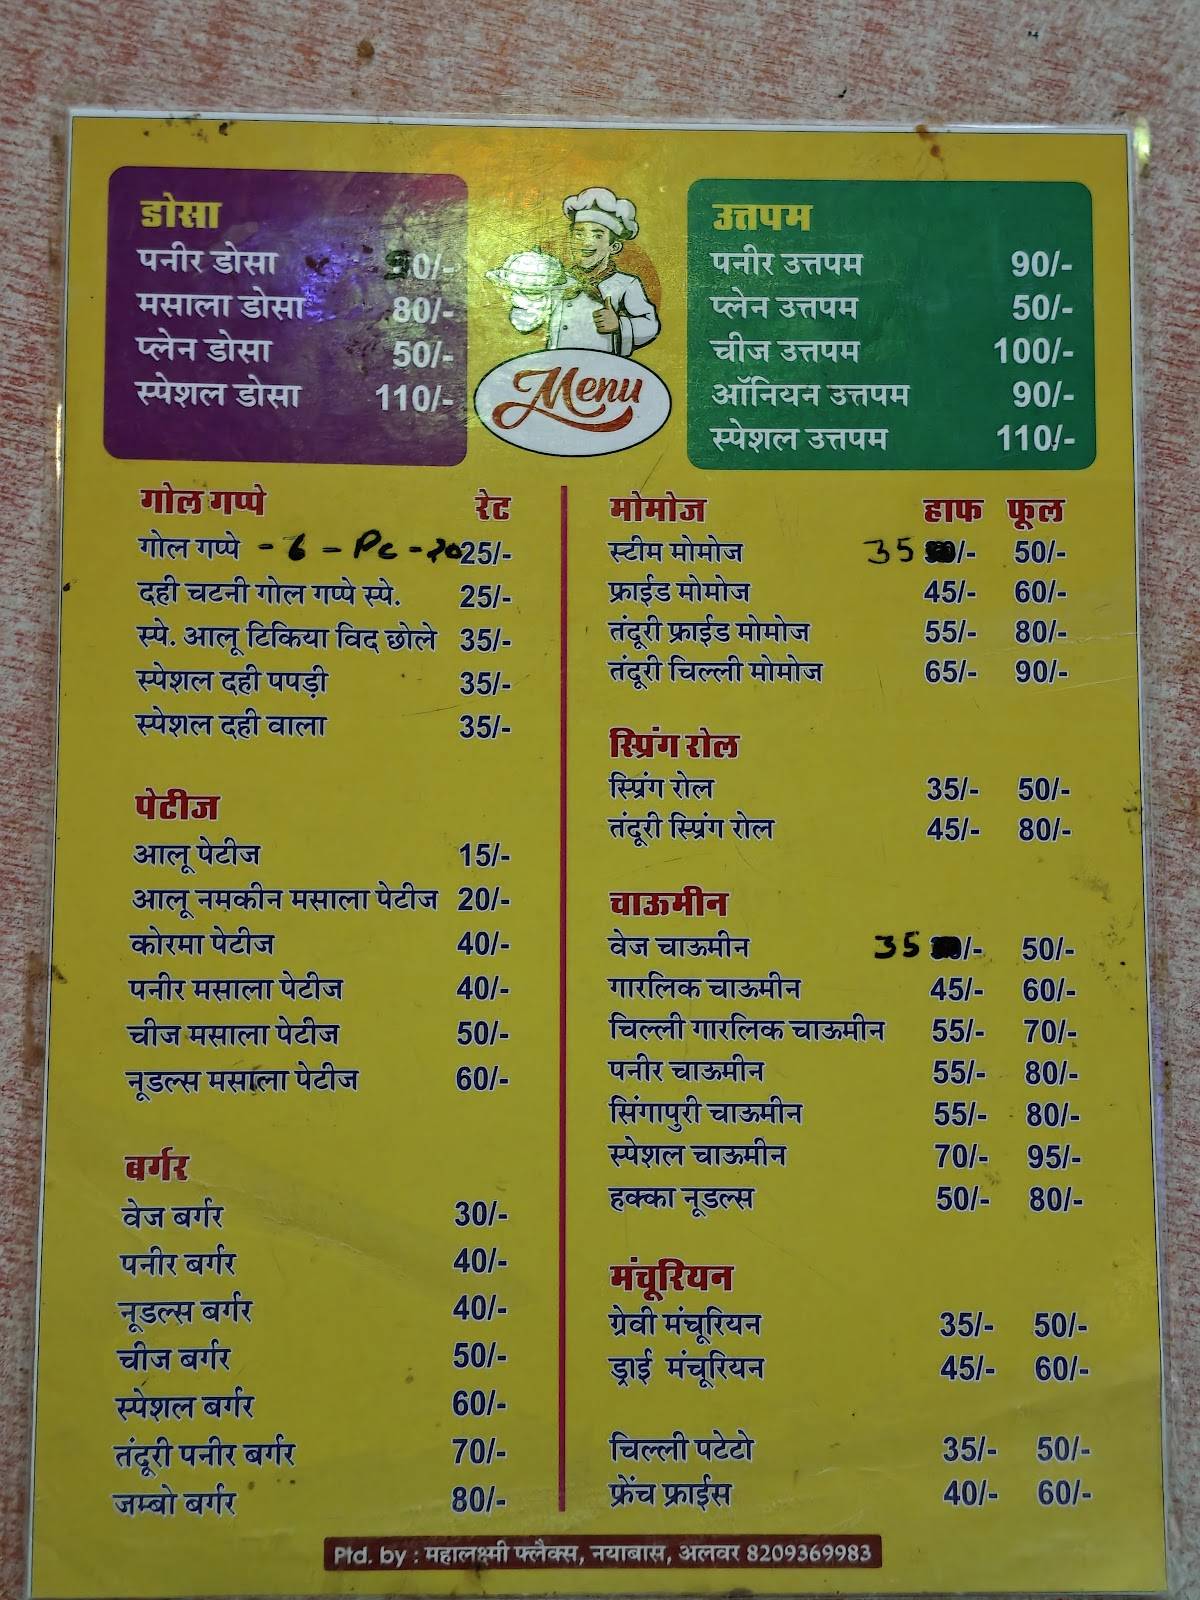 डोसा
पनीर डोसा 90/-
मसाला डोसा 80/-
प्लेन डोसा 50/-
स्पेशल डोसा 110/-
Menu
उत्तपम
पनीर उत्तपम 90/-
प्लेन उत्तपम 50/-
चीज उत्तपम 100/-
ऑनियन उत्तपम 90/-
स्पेशल उत्तपम 110/-
गोल गप्पे रेट
गोल गप्पे - 6 - Pc - 20 25/-
दही चटनी गोल गप्पे स्पे. 25/-
स्पे. आलू टिकिया विद छोले 35/-
स्पेशल दही पपड़ी 35/-
स्पेशल दही वाला 35/-
पेटीज
आलू पेटीज 15/-
आलू नमकीन मसाला पेटीज 20/-
कोरमा पेटीज 40/-
पनीर मसाला पेटीज 40/-
चीज मसाला पेटीज 50/-
नूडल्स मसाला पेटीज 60/-
बर्गर
वेज बर्गर 30/-
पनीर बर्गर 40/-
नूडल्स बर्गर 40/-
चीज बर्गर 50/-
स्पेशल बर्गर 60/-
तंदूरी पनीर बर्गर 70/-
जम्बो बर्गर 80/-
मोमोज हाफ फूल
स्टीम मोमोज 35 /- 50/-
फ्राईड मोमोज 45/- 60/-
तंदूरी फ्राईड मोमोज 55/- 80/-
तंदूरी चिल्ली मोमोज 65/- 90/-
स्प्रिंग रोल
स्प्रिंग रोल 35/- 50/-
तंदूरी स्प्रिंग रोल 45/- 80/-
चाऊमीन
वेज चाऊमीन 35 /- 50/-
गारलिक चाऊमीन 45/- 60/-
चिल्ली गारलिक चाऊमीन 55/- 70/-
पनीर चाऊमीन 55/- 80/-
सिंगापुरी चाऊमीन 55/- 80/-
स्पेशल चाऊमीन 70/- 95/-
हक्का नूडल्स 50/- 80/-
मंचूरियन
ग्रेवी मंचूरियन 35/- 50/-
ड्राई मंचूरियन 45/- 60/-
चिल्ली पटेटो 35/- 50/-
फ्रेंच फ्राईस 40/- 60/-
Ptd. by : महालक्ष्मी फ्लैक्स, नयाबास, अलवर 8209369983